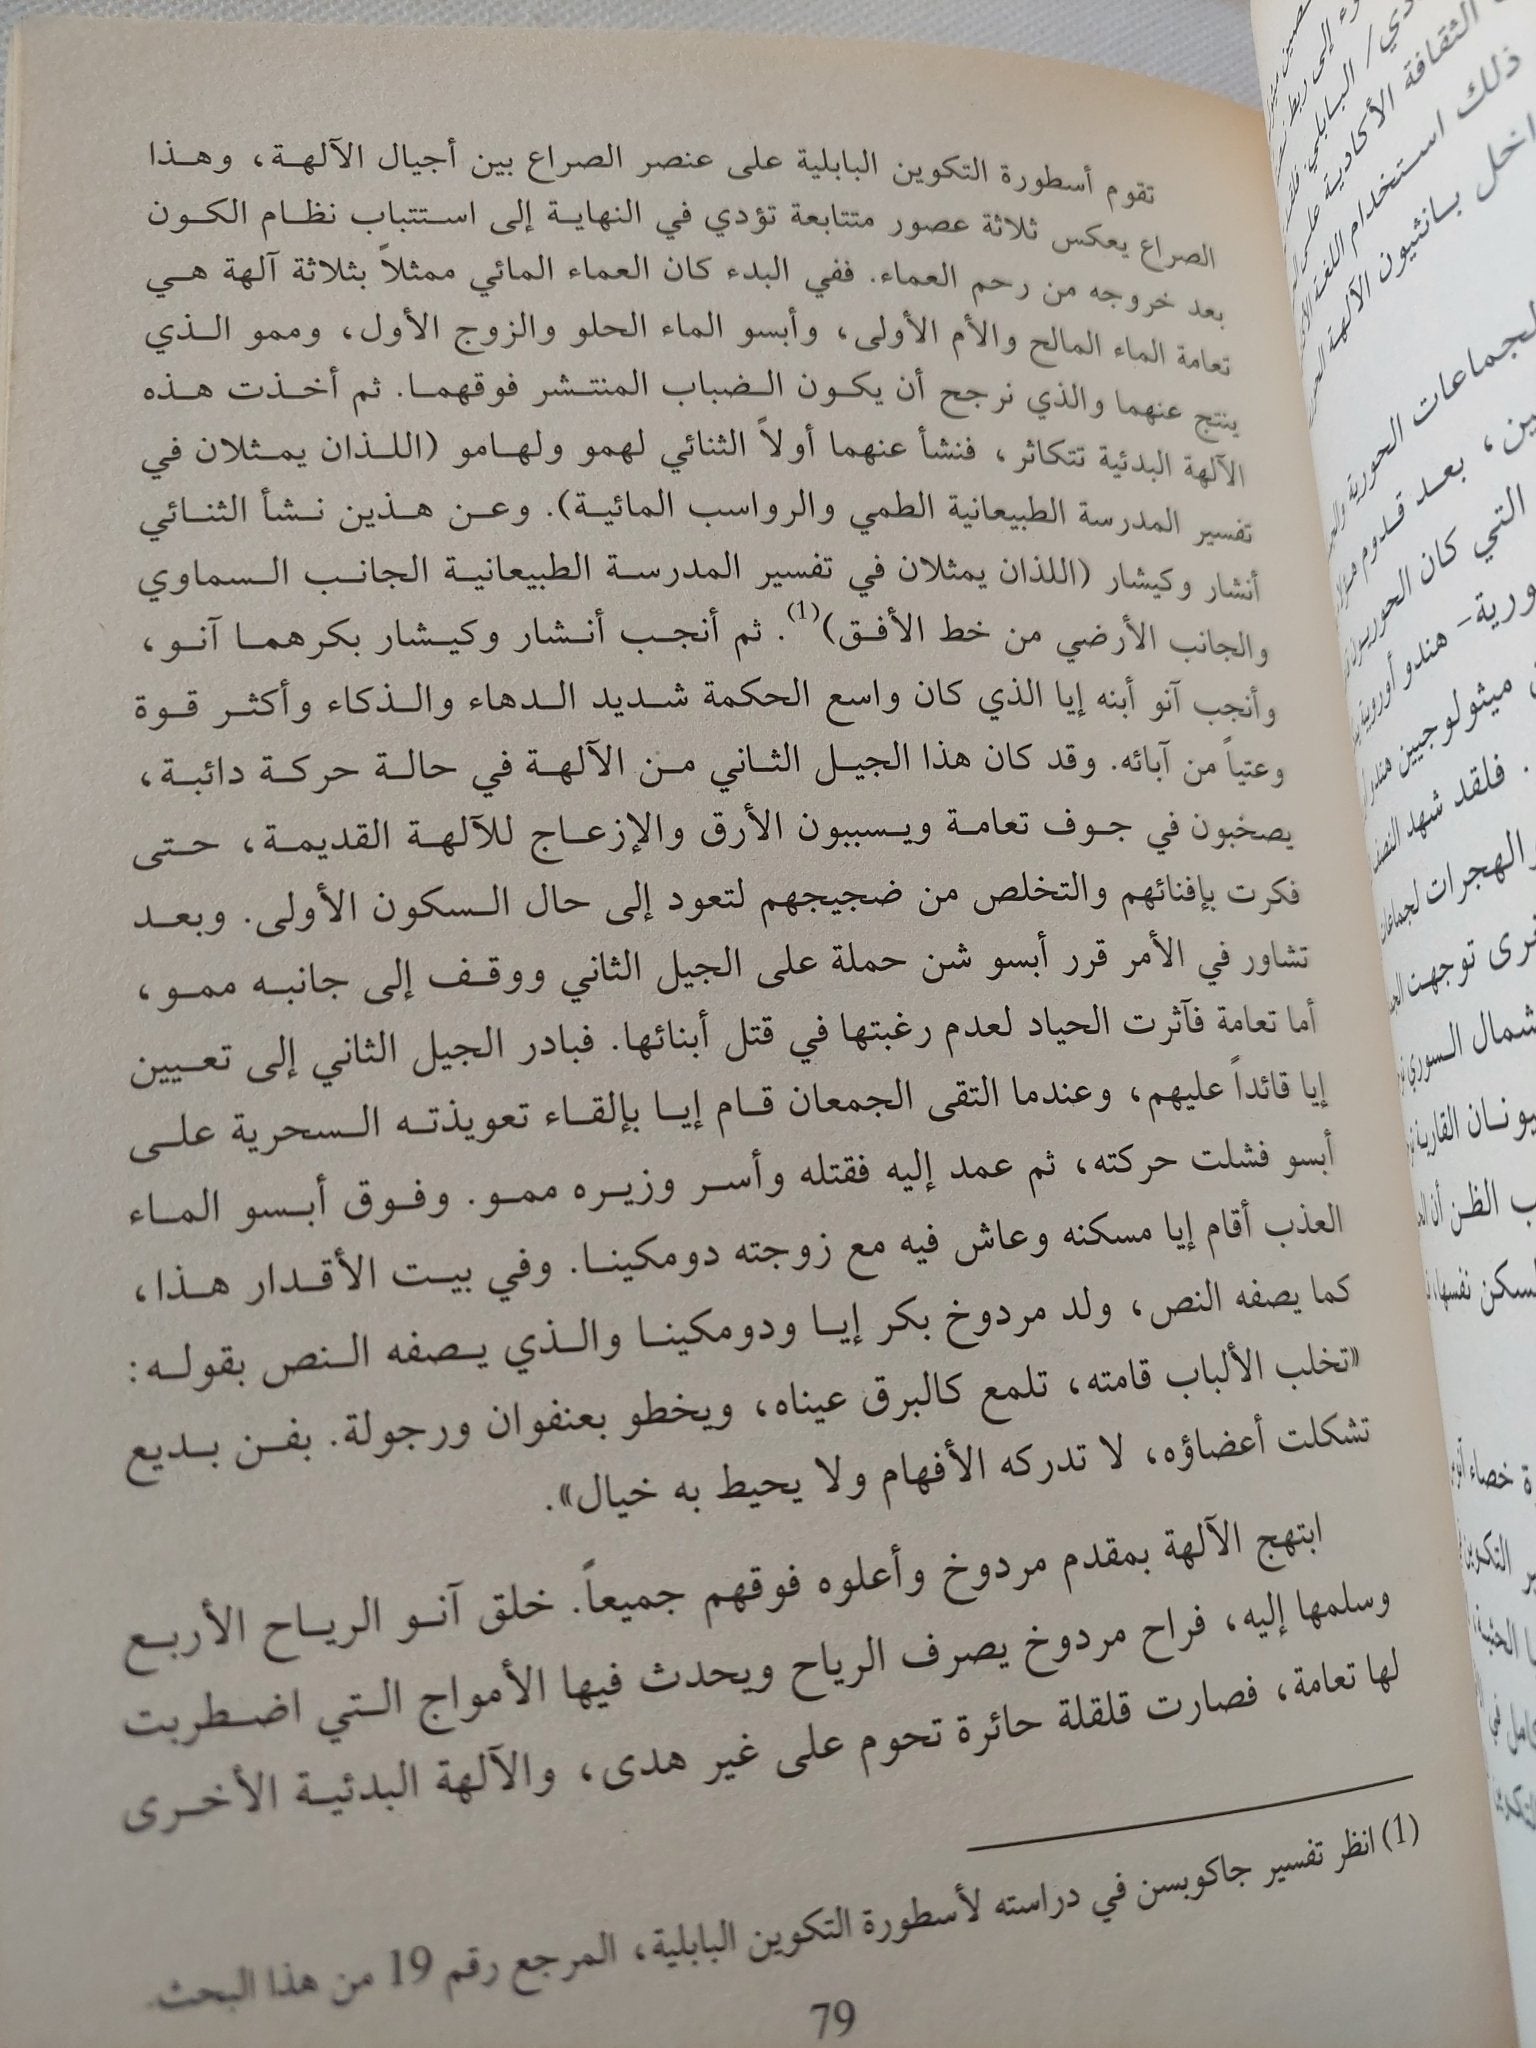 تقوم أسطورة التكوين البابلية على عنصر الصراع بين أجيال الآلهة، وهذا
الصراع يعكس ثلاثة عصور متتابعة تؤدي في النهاية إلى استتباب نظام الكون
بعد خروجه من رحم العماء. ففي البدء كان العماء المائي ممثلاً بثلاثة آلهة هي
تعامة الماء المالح والأم الأولى، وأبسو الماء الحلو والزوج الأول، وممو الذي
ينتج عنهما والذي نرجح أن يكون الضباب المنتشر فوقهما. ثم أخذت هذه
الآلهة البدئية تتكاثر، فنشأ عنهما أولاً الثنائي لهمو ولهامو (اللذان يمثلان في
تفسير المدرسة الطبيعانية الطمي والرواسب المائية). وعن هذين نشأ الثنائي
أنشار وكيشار (اللذان يمثلان في تفسير المدرسة الطبيعانية الجانب السماوي
والجانب الأرضي من خط الأفق)(1). ثم أنجب أنشار وكيشار بكرهما آنو،
وأنجب آنو أبنه إيا الذي كان واسع الحكمة شديد الدهاء والذكاء وأكثر قوة
وعتياً من آبائه. وقد كان هذا الجيل الثاني من الآلهة في حالة حركة دائبة،
يصخبون في جوف تعامة ويسببون الأرق والإزعاج للآلهة القديمة، حتى
فكرت بإفنائهم والتخلص من ضجيجهم لتعود إلى حال السكون الأولى. وبعد
تشاور في الأمر قرر أبسو شن حملة على الجيل الثاني ووقف إلى جانبه ممو،
أما تعامة فآثرت الحياد لعدم رغبتها في قتل أبنائها. فبادر الجيل الثاني إلى تعيين
إيا قائداً عليهم، وعندما التقى الجمعان قام إيا بإلقاء تعويذته السحرية على
أبسو فشلت حركته، ثم عمد إليه فقتله وأسر وزيره ممو. وفوق أبسو الماء
العذب أقام إيا مسكنه وعاش فيه مع زوجته دومكينا. وفي بيت الأقدار هذا،
كما يصفه النص، ولد مردوخ بكر إيا ودومكينا والذي يصفه النص بقوله:
«تخلب الألباب قامته، تلمع كالبرق عيناه، ويخطو بعنفوان ورجولة. بفن بديع
تشكلت أعضاؤه، لا تدركه الأفهام ولا يحيط به خيال».
ابتهج الآلهة بمقدم مردوخ وأعلوه فوقهم جميعاً. خلق آنو الرياح الأربع
وسلمها إليه، فراح مردوخ يصرف الرياح ويحدث فيها الأمواج التي اضطربت
لها تعامة، فصارت قلقلة حائرة تحوم على غير هدى، والآلهة البدئية الأخرى
(1) انظر تفسير جاكوبسن في دراسته لأسطورة التكوين البابلية، المرجع رقم 19 من هذا البحث.
79
الثقافة الأكادية
ذلك استخدام اللغة
بانثيون الآلهة
الجماعات الحورية
بعد قدوم
التي كان
هندو أوروبية
ميثولوجيين
فلقد شهد
والهجرات
توجهت
السوري
القارية
الظن أن
نفسها
خصاء